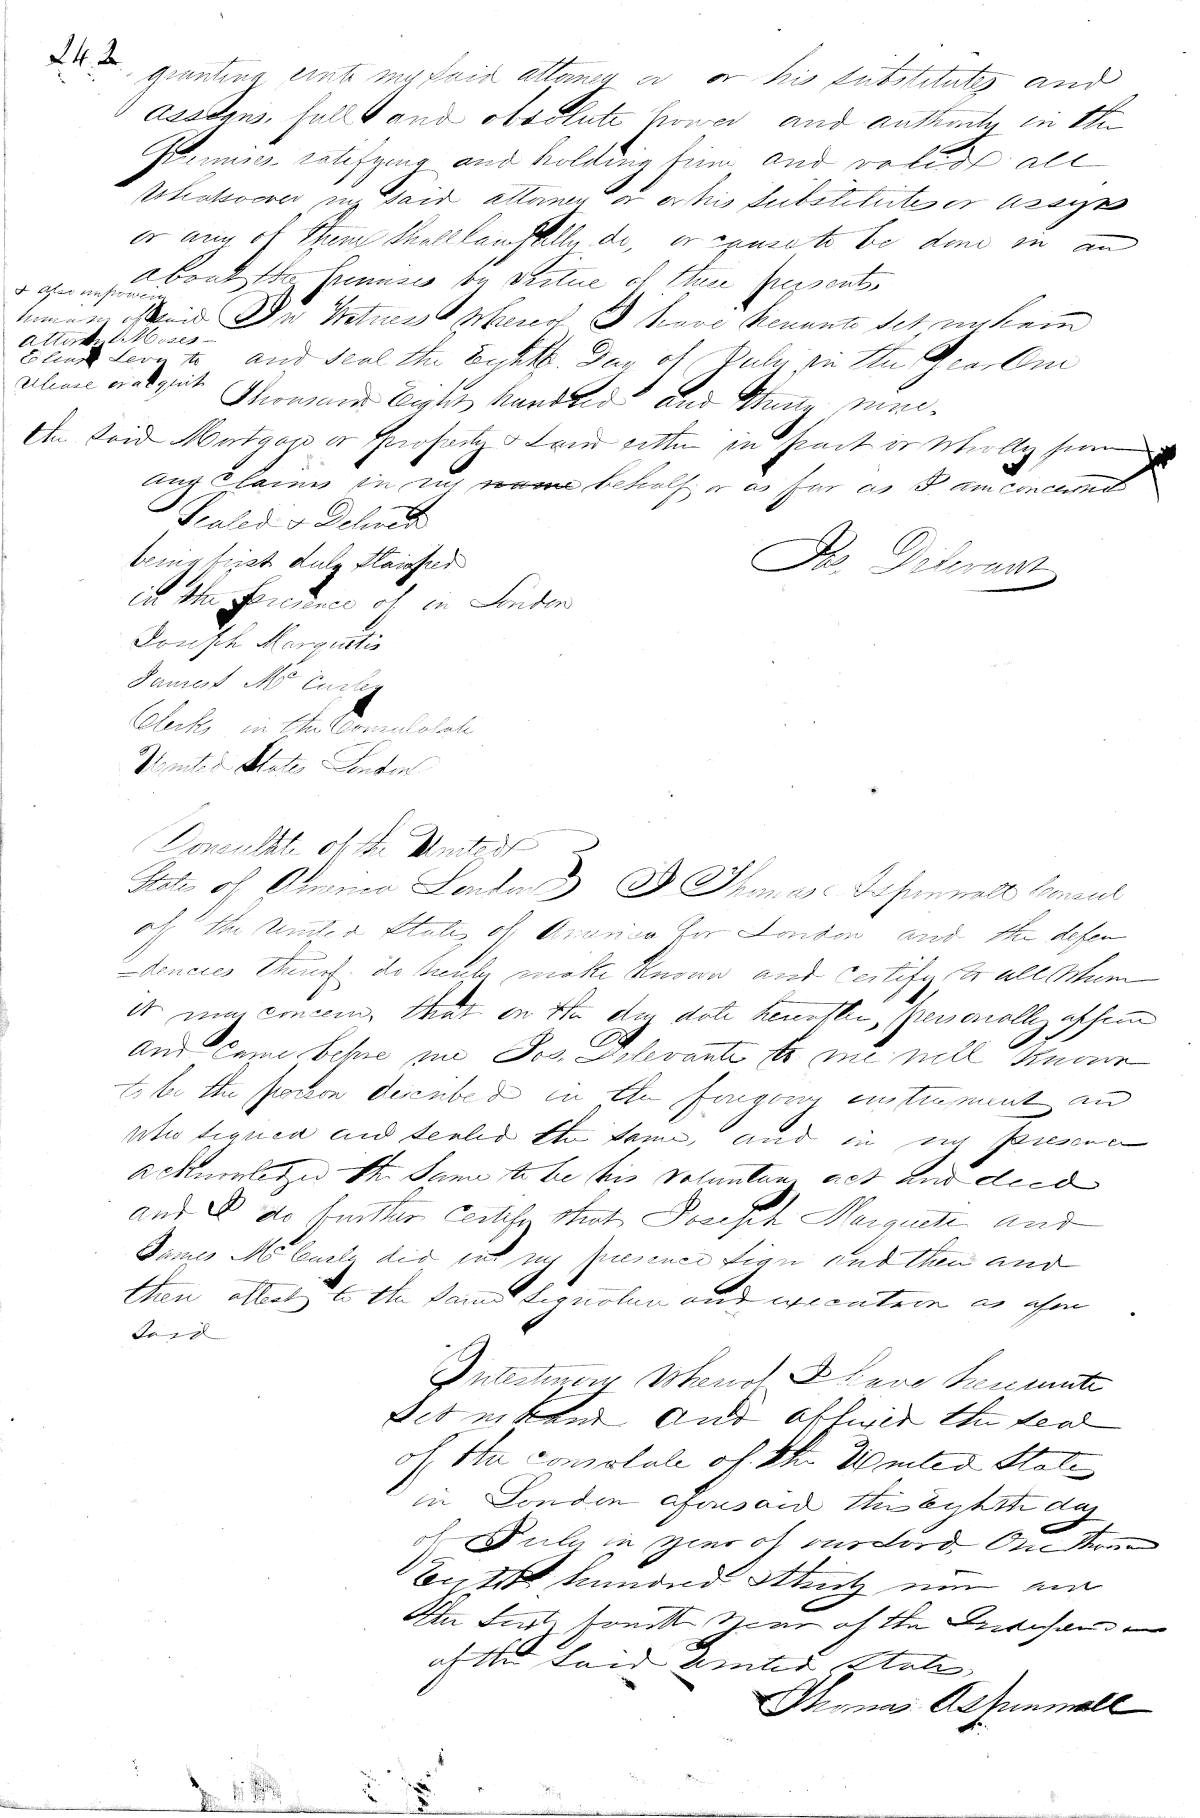 242
granting unto my said attorney or or his substitutes and
assigns. full and absolute power and authority in the
Premises ratifying and holding firm and valid all
Whatsoever my said attorney or or his substitutes or assigns
or any of them shall lawfully do, or cause to be done in an
about the premises by virtue of these presents.
& also empowering
him my said
attorney Moses
Eleias Levy to
release or acquit
In Witness Whereof I have hereunto set my hand
and seal the Eighth Day of July in the Year One
Thousand Eight hundred and thirty nine.
the said Mortgage or property & Land either in part or wholly from
any claims in my name behalf or as far as I am concerned
Sealed & Delivered
being first duly stamped
in the presence of in London
Jos. Delevante
Joseph Marquetis
James McCurley
Clerks in the Consulalate
United States London
Consulate of the United
States of America London } I Thomas Aspinwall Consul
of the United States of America for London and the depen
-dencies thereof do hereby make known and certify to all whom
it may concern, that on the day date hereafter, personally appeared
and came before me Jos. Delevante to me well known
to be the person described in the foregoing instrument an
who signed and sealed the same, and in my presence
acknowledged the same to be his voluntary act and deed
and I do further certify that Joseph Marquete and
James McCurly did in my presence sign and then and
then attest to the same signature and execution as afore
said
In testimony Whereof I have hereunto
set my hand and affixed the seal
of the consulate of the United States
in London aforesaid this Eighth day
of July in year of our Lord, One thousand
Eight hundred & thirty nine and
the sixty fourth year of the Independence
of the said United States,
Thomas Aspinwall